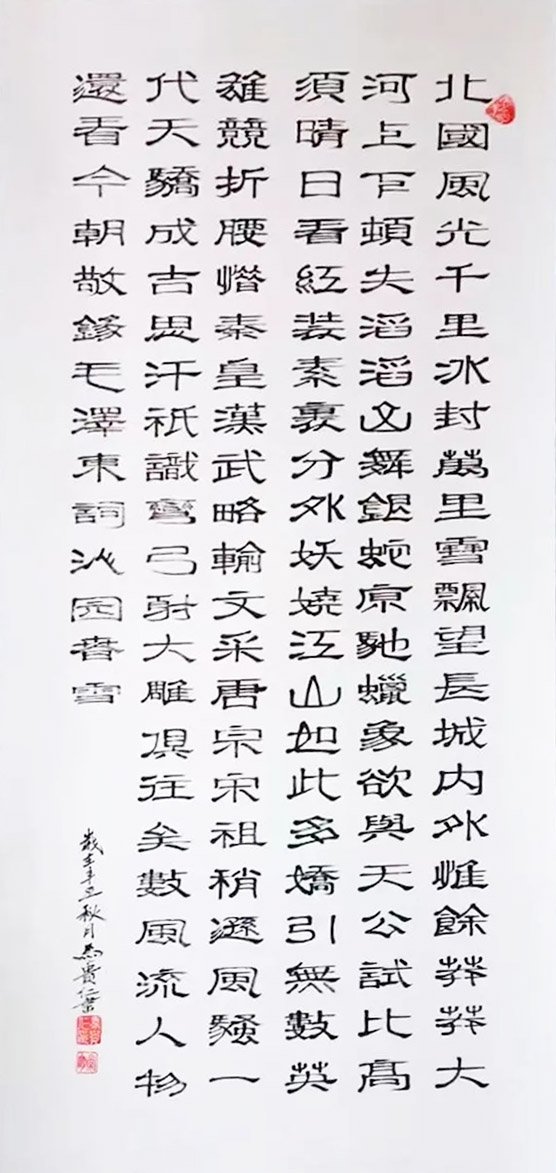 北國風光千里冰封萬里雪飄望長城內外惟餘莽莽大
河上下頓失滔滔山舞銀蛇原馳蠟象欲與天公試比高
須晴日看紅裝素裹分外妖嬈江山如此多嬌引無數英
雄競折腰惜秦皇漢武略輸文采唐宗宋祖稍遜風騷一
代天驕成吉思汗祇識彎弓射大雕俱往矣數風流人物
還看今朝敬錄毛澤東詞沁園春雪
歲在辛丑秋月馬貴仁